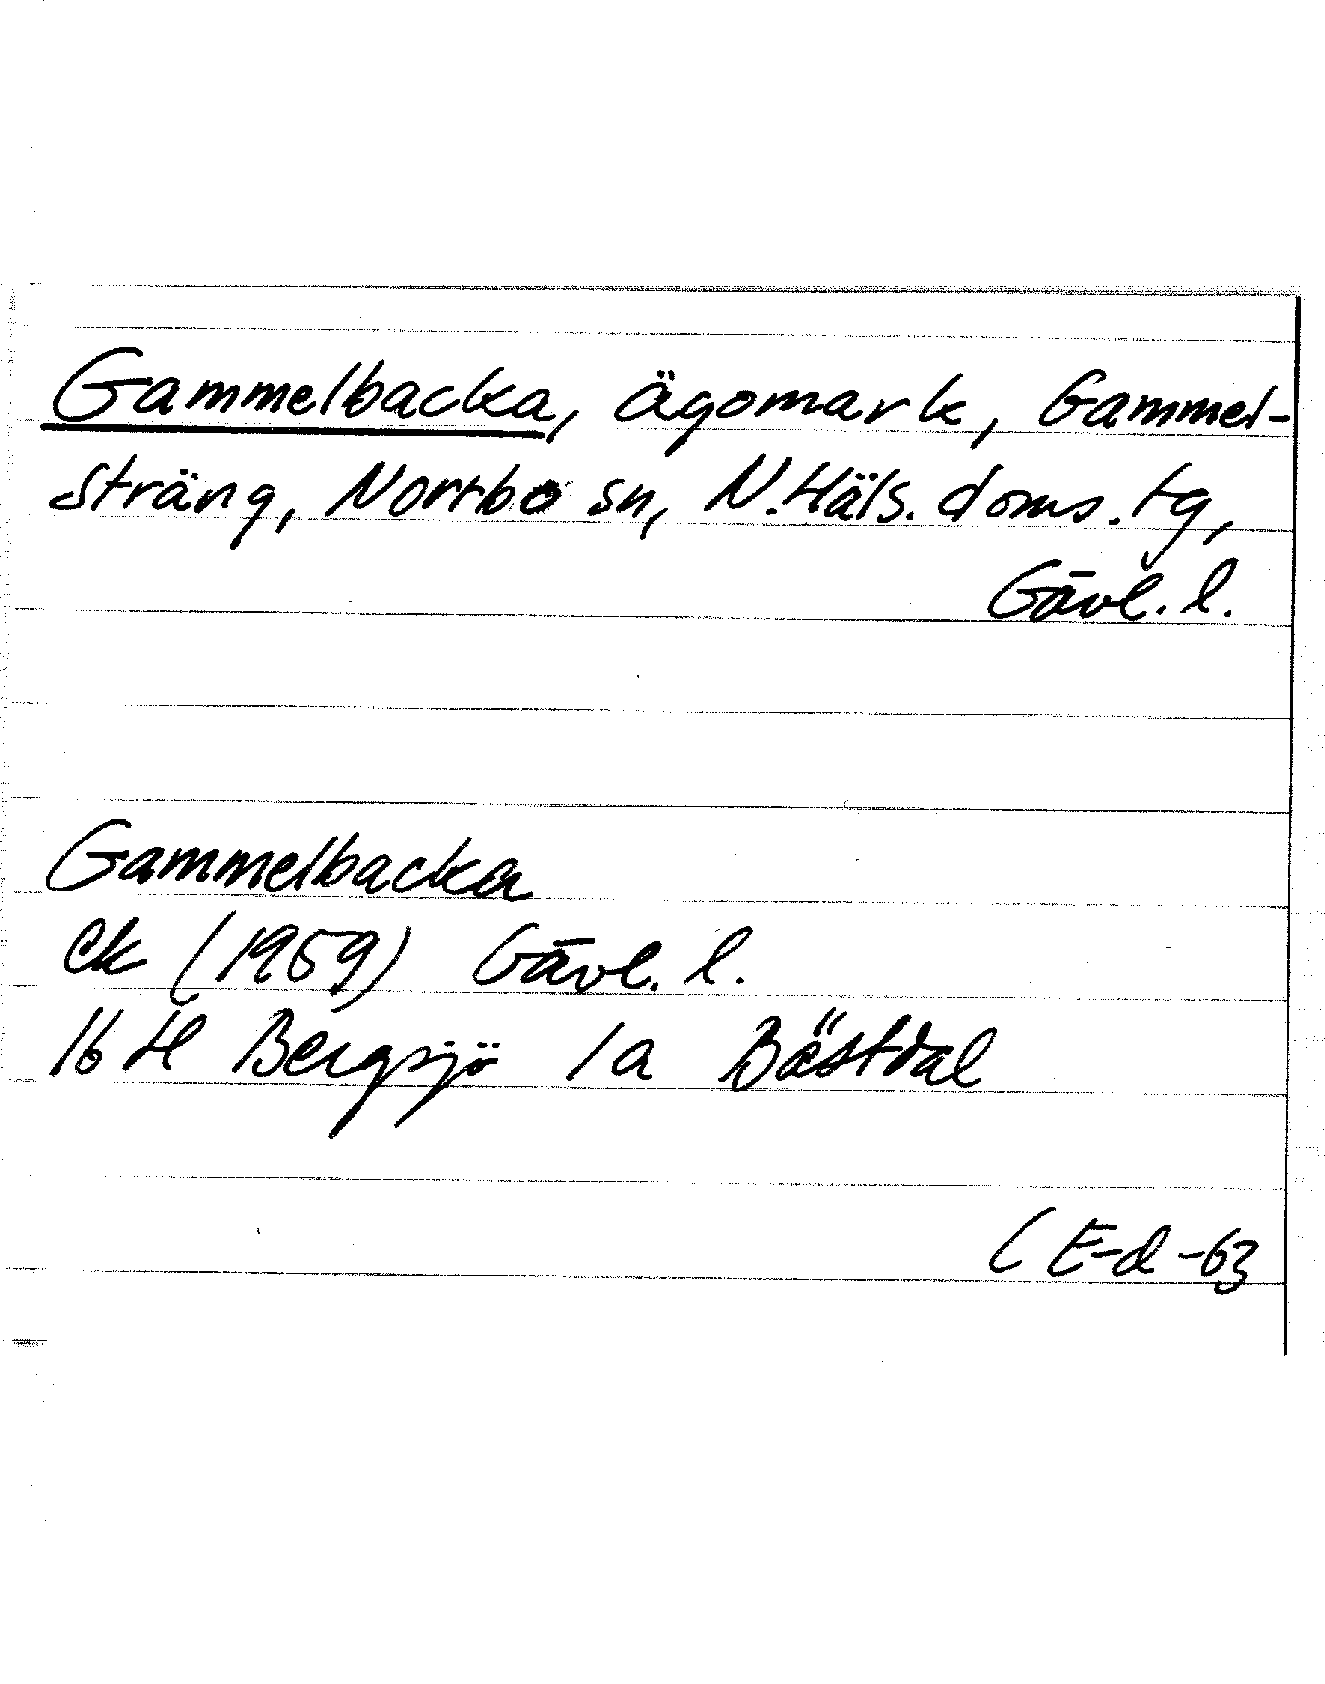 Gammelbacka, ägomark, Gammel-
sträng, Norrbo sn, N.Häls. doms.tg,
Gävl. l.
Gammelbacka
Ek (1959) Gävl. l.
16 H Bergsjö 1a Bästdal
(E-d -63